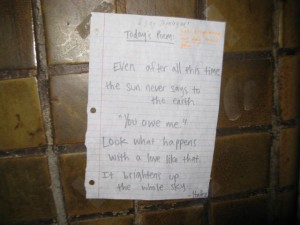 Today's Poem
Even after all this time
the sun never says to
the earth
"You owe me."
Look what happens
with a love like that.
It brightens up
the whole sky